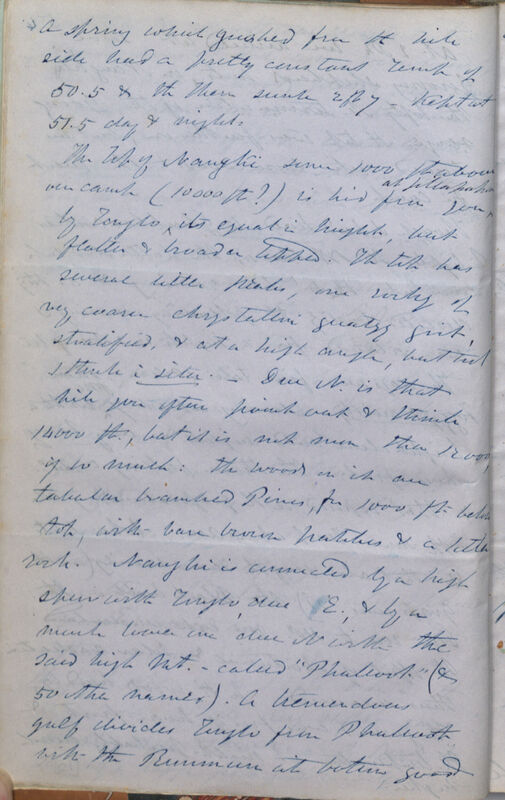 A spring which gushed from the hill
side had a pretty constant temp of
50.5 & the therm sunk 2ft - kept at
51.5 day & night.
The top of Nanghi some 1000 ft above
our camp (10000 ft?) is hid from you, at
by Tonglo, its equal in height, but
flatter & broader topped. The top has
several little peaks, one rocky of
very coarse chrystalline quartzy grit,
stratified, & at a high angle, but not
I think in situ. - Due N. is that
hill you often point out & think
14000 ft, but it is not more than 12000,
if so much: the woods on it are
tabular branched Pines, for 1000 ft below
top, with bare brown patches & a little
rock. Nanghi is connected by a high
spur with Tonglo, due E., & by a
much lower one due N with the
said high Mt. - called "Phulloot" (&
50 other names). A tremendous
gulf divides Tonglo from Phulloot
with the Rummum at bottom, good